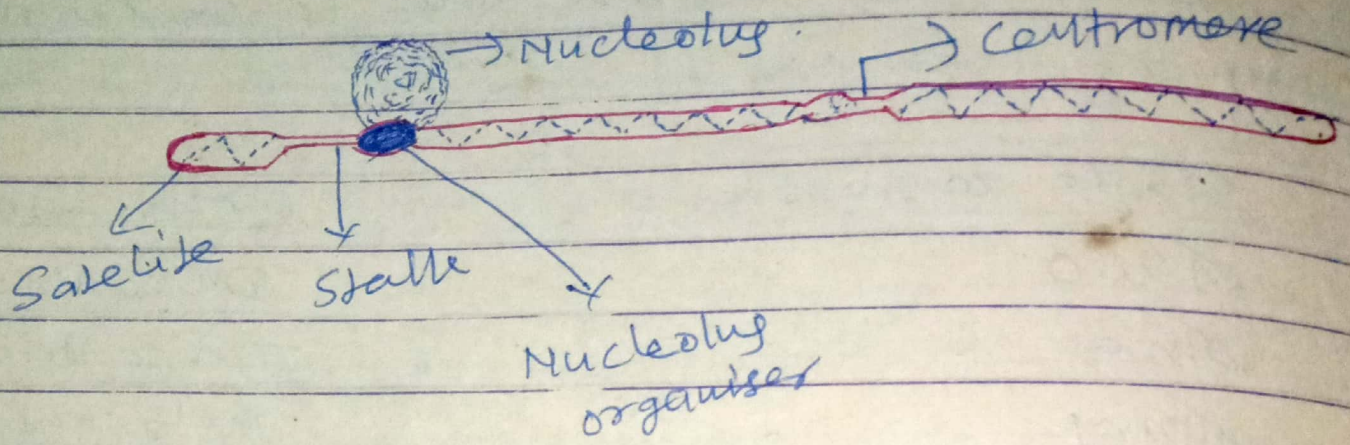 Nucleolus
Centromere
Satelite
Stalk
Nucleolus
organiser